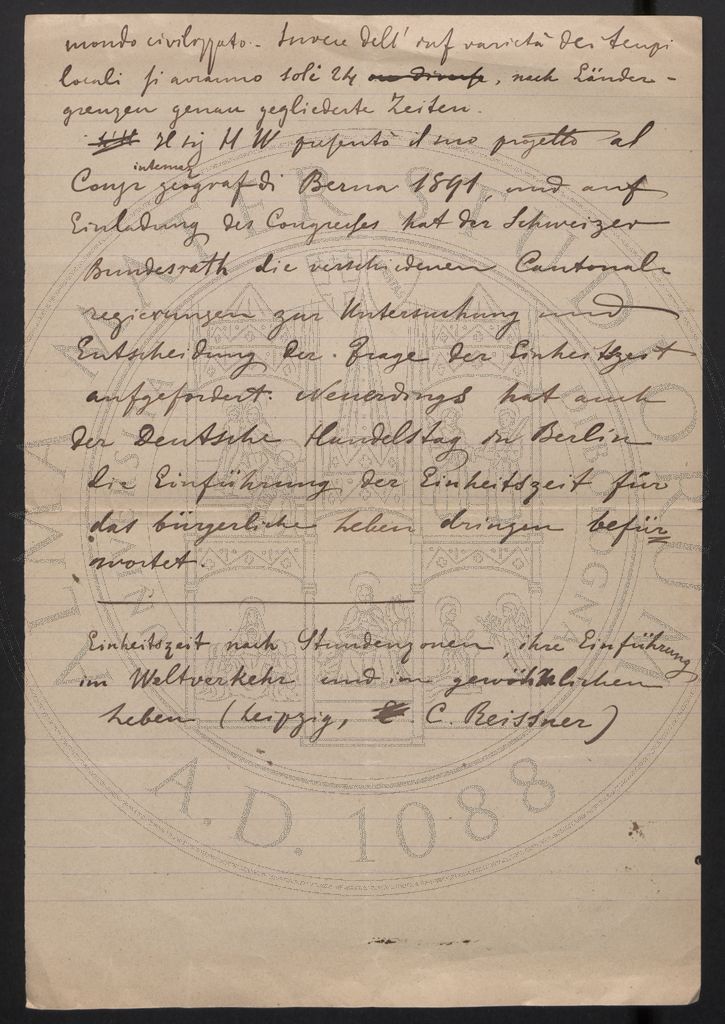 mondo civilizzato. Invece dell' varietà dei tempi
locali si avranno sole 24 ore diverse, nach Länder-
grenzen genau gegliederte Zeiten.
Il sig H W presentò il suo progetto al
internaz
Congr geograf di Berna 1891, und auf
Einladung des Congresses hat der Schweizer
Bundesrath die verschiedenen Cantonal-
regierungen zur Untersuchung und
Entscheidung der Frage der Einheitszeit
aufgefordert. Neuerdings hat auch
der Deutsche Handelstag in Berlin
die Einführung der Einheitszeit für
das bürgerliche Leben dringen befür
wortet.
Einheitszeit nach Stundenzonen, ihre Einführung
im Weltverkehr und im gewöhnlichen
Leben (Leipzig, C. Reissner)
ALMA MATER STUDIORUM
A.D. 1088